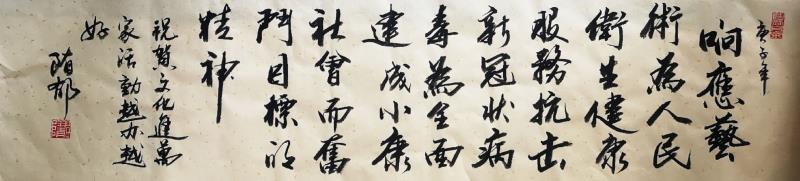 庚子年
响應藝
術為人民
衛生健康
服務抗击
新冠状病
毒為全面
建成小康
社會而奮
鬥目標的
精神
祝賀文化進萬
家活動越办越
好